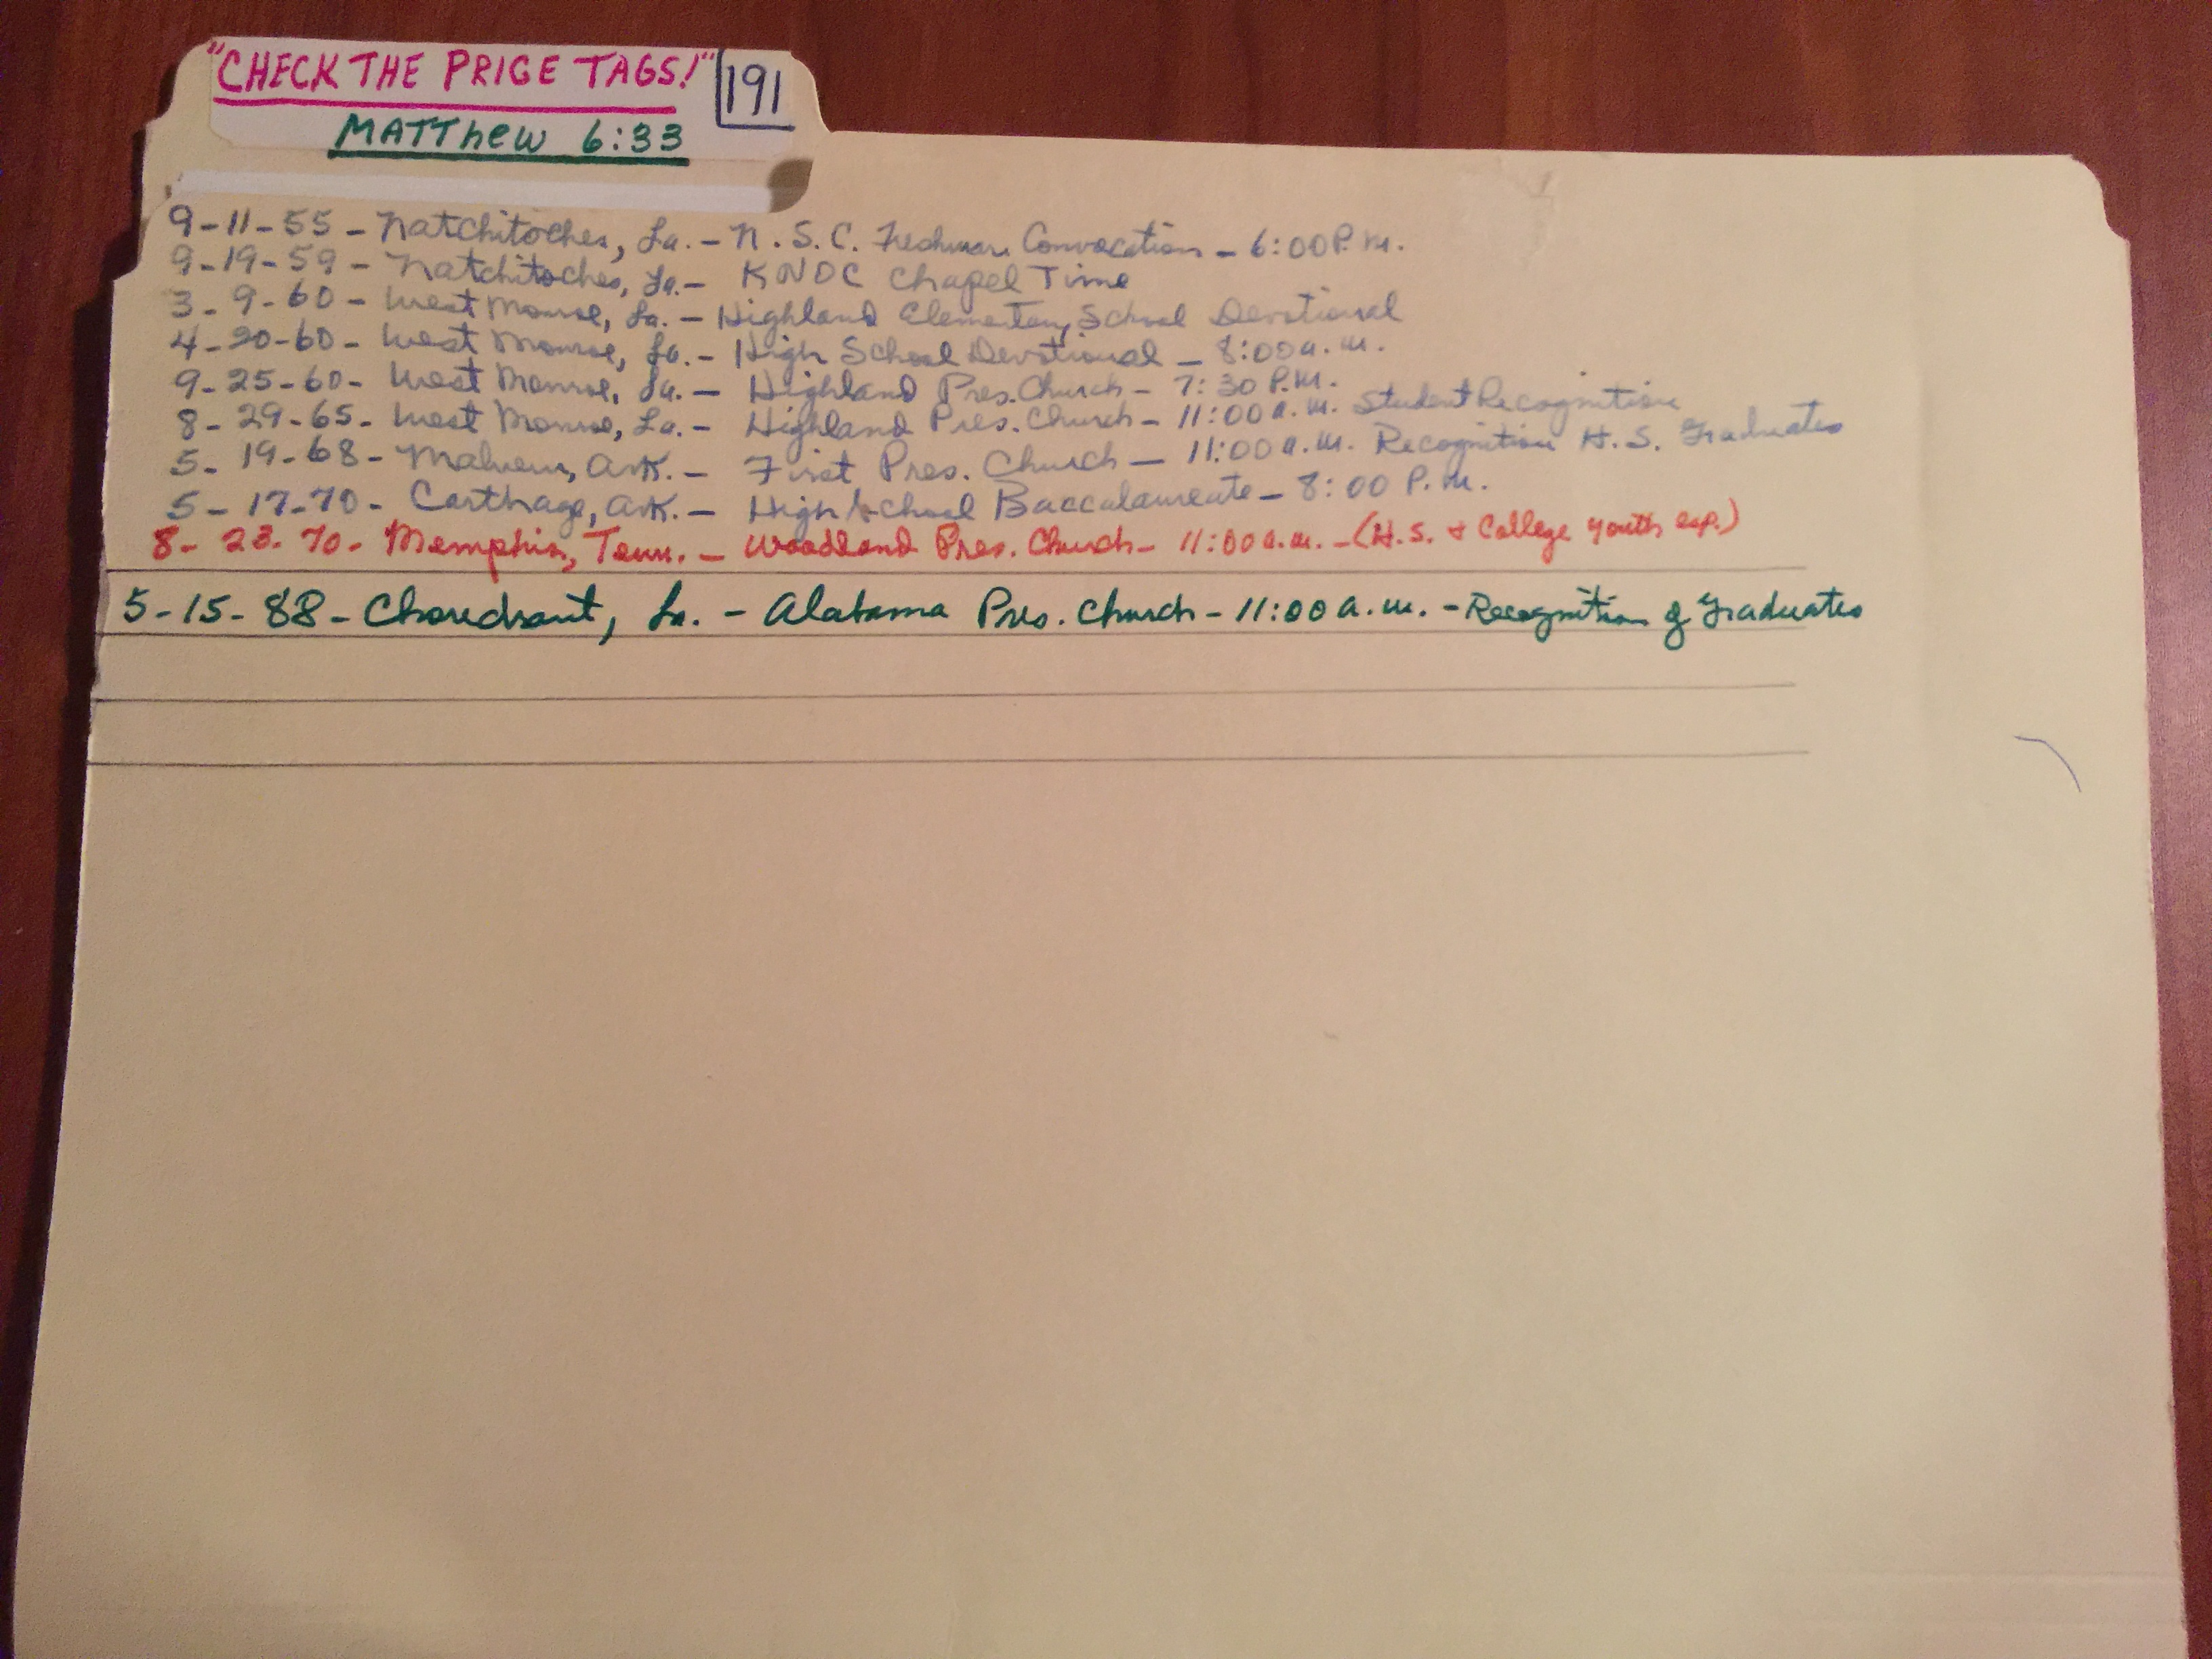 "CHECK THE PRICE TAGS!" 191
MATThew 6:33
9-11-55 - Natchitoches, La. - N.S.C. Freshman Convocation - 6:00 P.M.
9-19-59 - Natchitoches, La. - KNOC Chapel Time
3-9-60 - West Monroe, La. - Highland Elementary School Devotional
4-20-60 - West Monroe, La. - High School Devotional - 8:00 a.m.
9-25-60 - West Monroe, La. - Highland Pres. Church - 7:30 P.M.
8-29-65 - West Monroe, La. - Highland Pres. Church - 11:00 a.m. Student Recognition
5-19-68 - Malvern, Ark. - First Pres. Church - 11:00 a.m. Recognition H.S. Graduates
5-17-70 - Carthage, Ark. - High School Baccalaureate - 8:00 P.M.
8-23-70 - Memphis, Tenn. - Woodland Pres. Church - 11:00 a.m. - (H.S. + College youth esp.)
5-15-88 - Choudrant, La. - Alabama Pres. Church - 11:00 a.m. - Recognition of Graduates